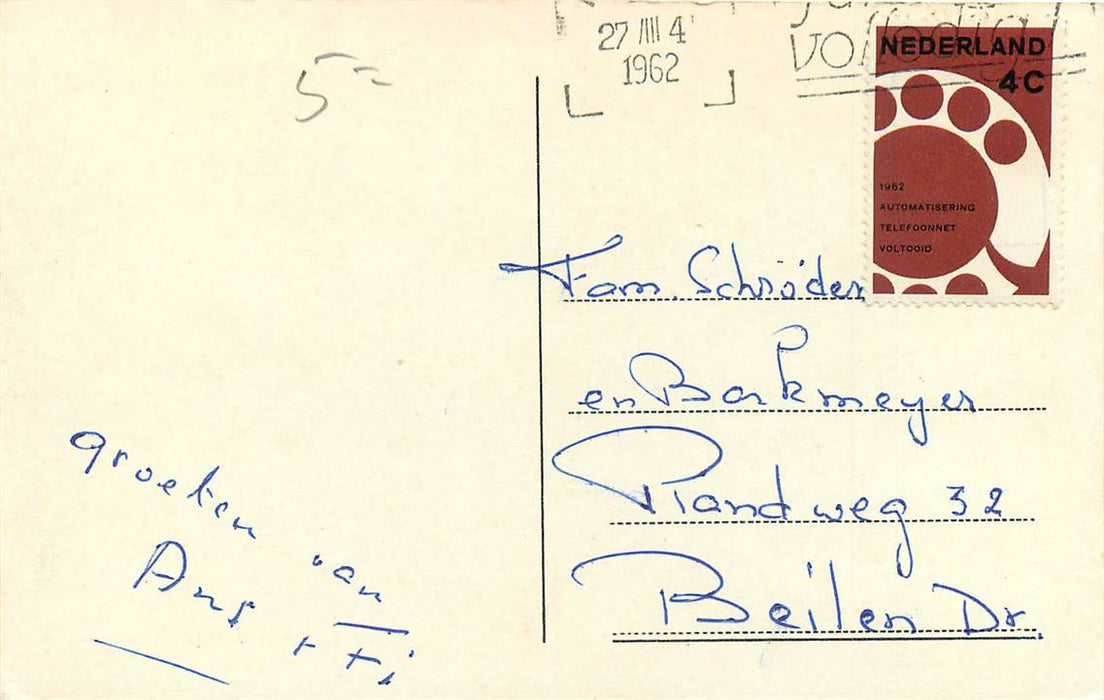 5
27 IIII 4
1962
NEDERLAND
4C
1962
AUTOMATISERING
TELEFOONNET
VOLTOOID
Fam. Schröder
en Barkmeyer
Randweg 32
Beilen Dr.
groeten van
Ans